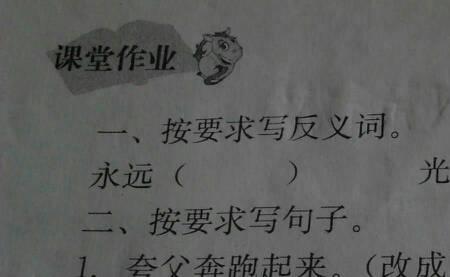 课堂作业
一、按要求写反义词。
永远（　　　）　　　光
二、按要求写句子。
1. 夸父奔跑起来。(改成